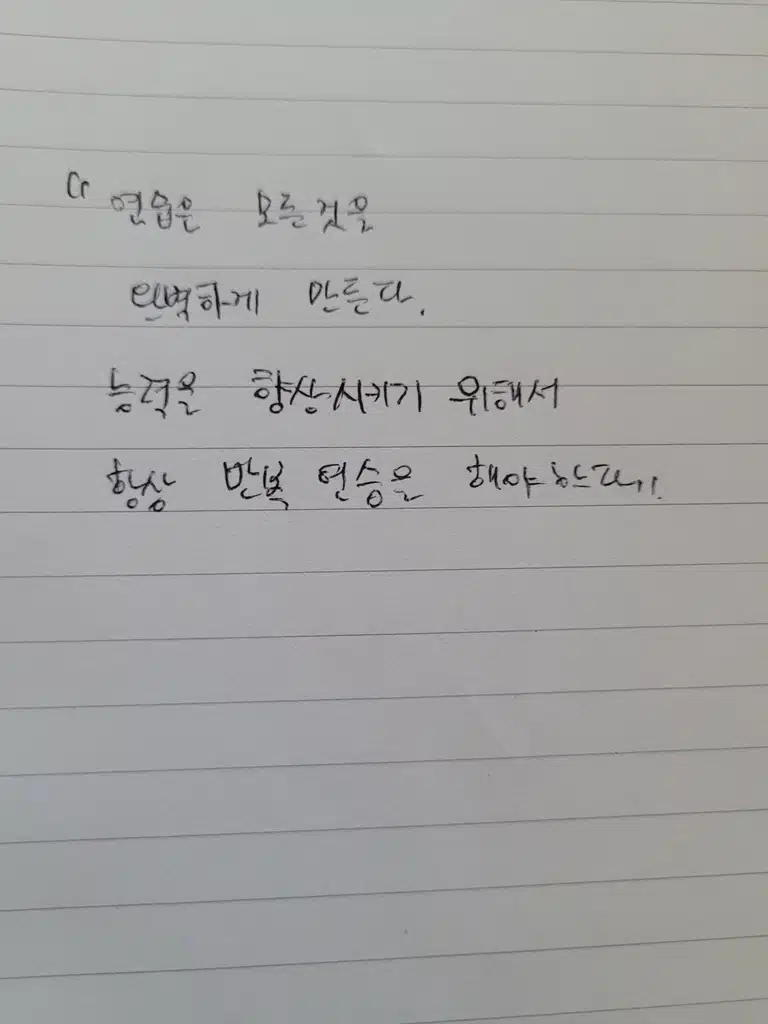 " 연습은 모든것을
완벽하게 만든다.
능력을 향상시키기 위해서
항상 반복 연습을 해야한다."